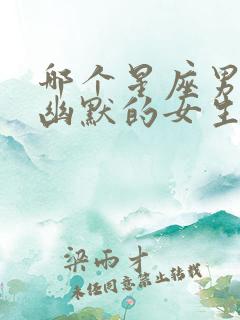 哪个星座男
幽默的女生
梁雨才
未经同意禁止转载